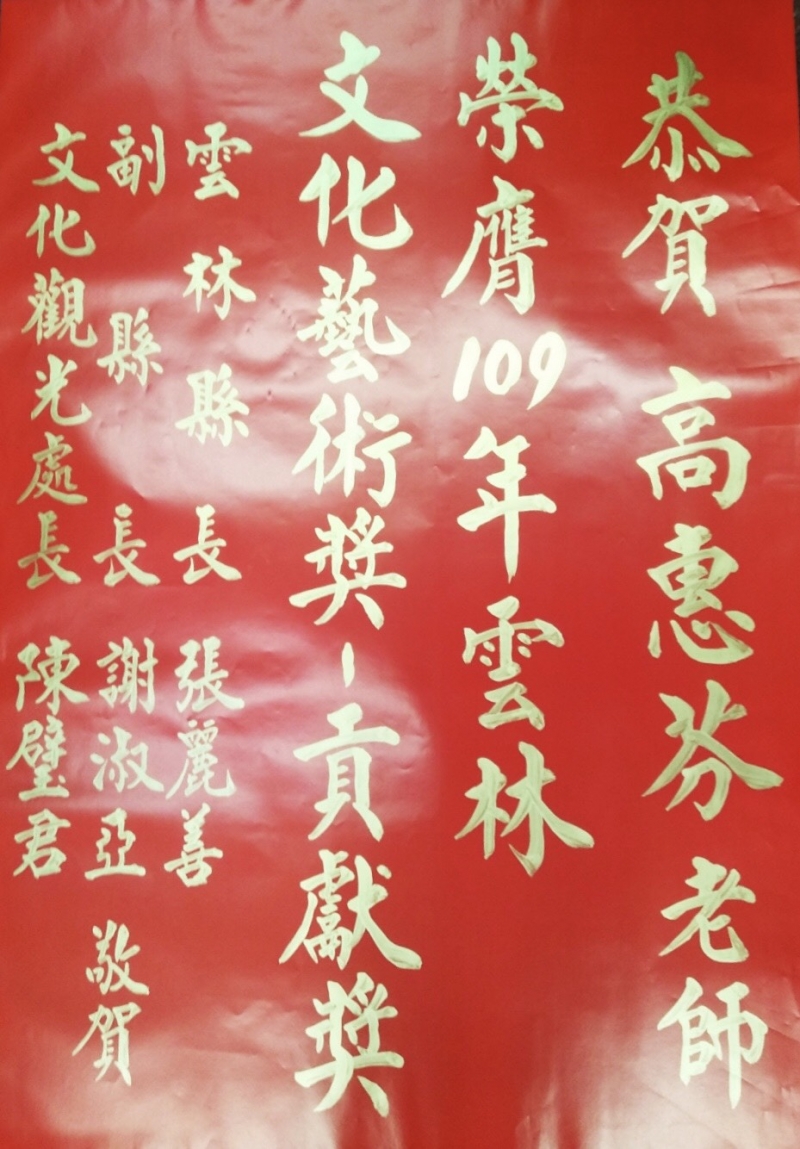 恭賀 高惠芬老師
榮膺109年雲林
文化藝術獎-貢獻獎
雲林縣長 張麗善
副縣長 謝淑亞
文化觀光處長 陳璧君
敬賀